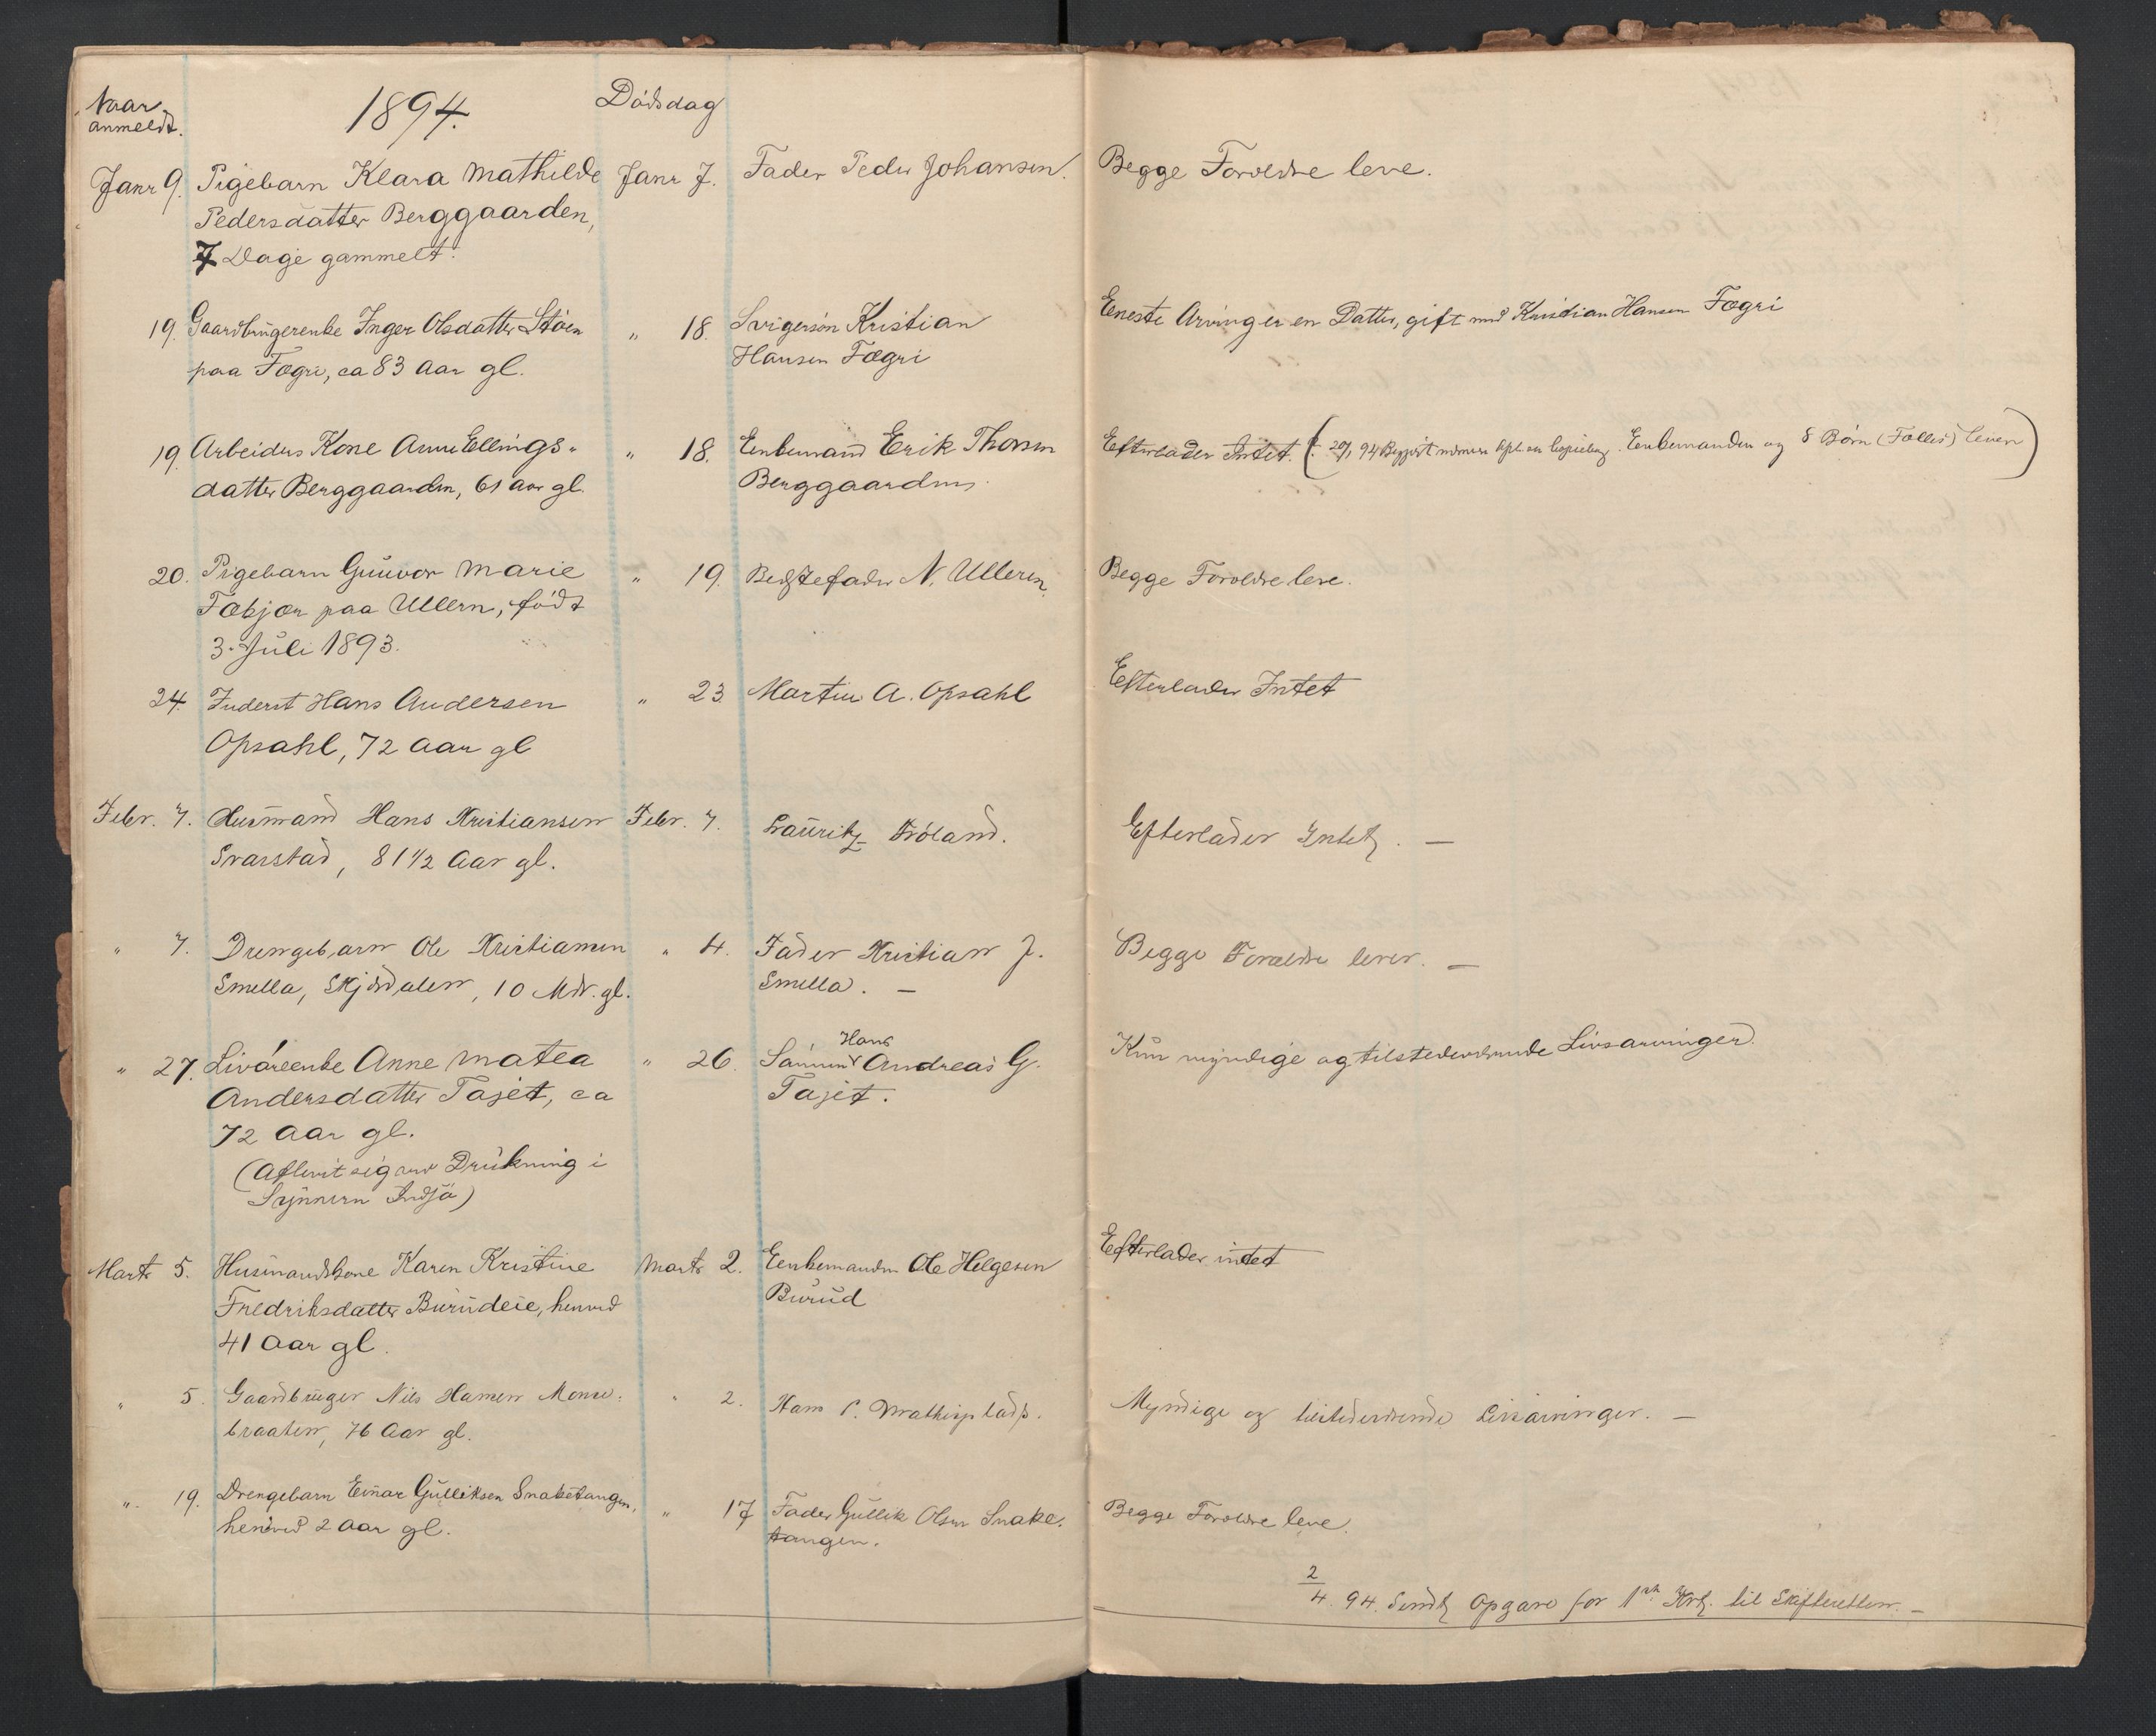 Naar anmeldt.
1894.
Dödsdag
Janr 9. Pigebarn Klara Mathilde Janr 7. Fader Peder Johansen. Begge Foreldre leve.
Pedersdatter Berggaarden,
7 Dage gammelt.
19. Gaardbrugerenke Inger Olsdatter Stöen " 18. Svigersön Kristian Eeneste Arving er en Datter, gift med Kristian Hansen Fægri
paa Fægri, ca 83 Aar gl. Hansen Fægri
19. Arbeiders Kone Anne Ellings- " 18. Enkemand Erik Thorsen Efterlader Intet. ( 94 Enkemanden og 8 Börn (Fælles) lever)
datter Berggaarden, 61 aar gl. Berggaarden
20. Pigebarn Gunvor Marie " 19. Bedstefader N. Ulleren Begge Foreldre leve.
Fæbjør paa Ullern, födt
3. Juli 1893.
24. Inderst Hans Andersen " 23 Martin A. Opsahl Efterlader Intet
Opsahl, 72 Aar gl
Febr. 7. Husmand Hans Kristiansen Febr. 7. Lauritz Fröland. Efterlader Intet. —
Svarstad, 81 1/2 Aar gl.
" 7. Drengebarn Ole Kristiansen " 4. Fader Kristian J. Begge Forældre lever. —
Smella, Skjördalen, 10 Mdr. gl. Smella. —
Hans
" 27. Livöreenke Anne Matea " 26. Sönnen Andreas G. Kun myndige og tilstedeværende Livsarvinger.
Andersdatter Tajet, ca Tajet.
72 Aar gl.
(Aflivet sig ved Drukning i
Synnern Indsjö)
Marts 5. Husmandskone Karen Kristine Marts 2. Eenkemanden Ole Helgesen Eefterlader intet
Fredriksdatter Burudeie, henved Burud
41 Aar gl.
" 5. Gaardbruger Nils Hansen Monse- " 2. Hans P. Mathisplads. Myndige og tilstedeværende Livsarvinger. —
braaten, 76 Aar gl.
" 19. Drengebarn Einar Gulliksen Snaketangen, " 17 Fader Gullik Olsen Snake- Begge Foreldre leve.
henved 2 Aar gl. tangen.
2/4 94. Sendt Opgave for 1ste Kvrt. til Skifteretten. —